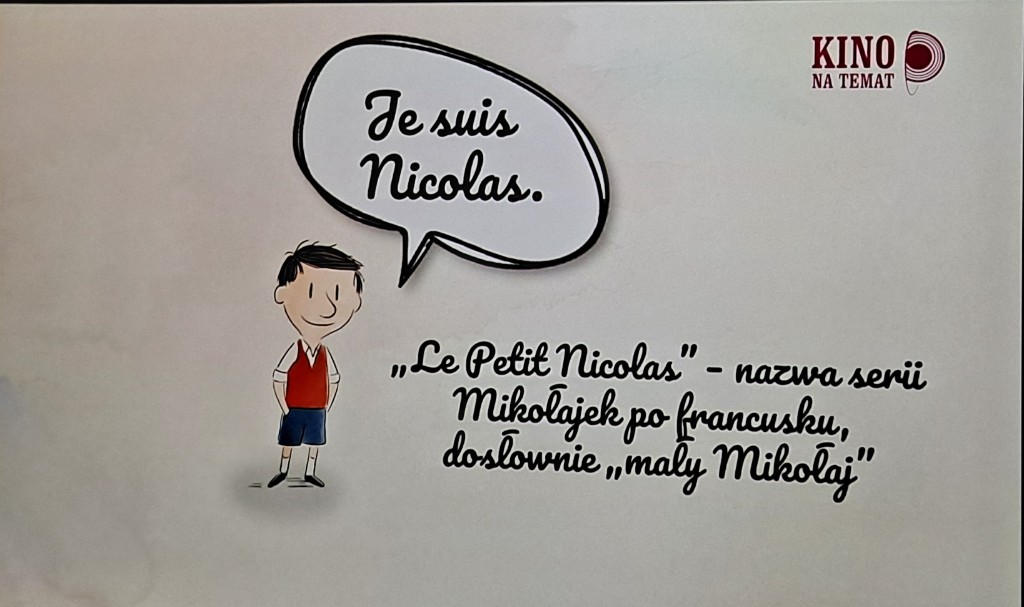 KINO
NA TEMAT
Je suis
Nicolas.
„Le Petit Nicolas” – nazwa serii
Mikołajek po francusku,
dosłownie „mały Mikołaj”